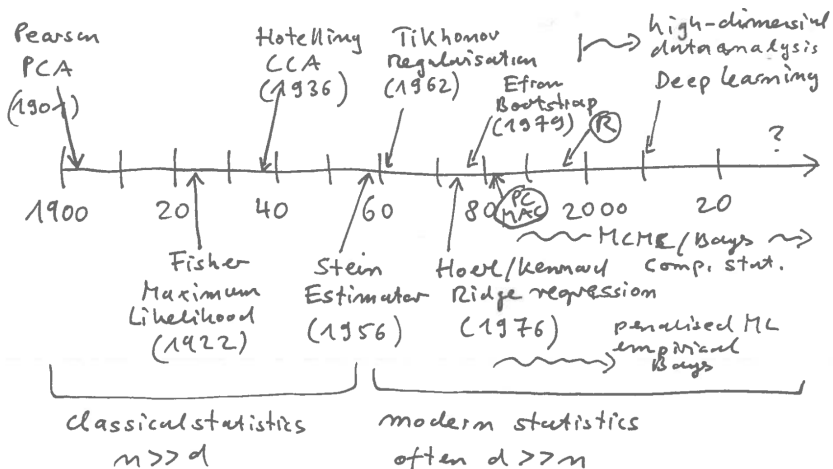 Pearson
PCA
(1901)
Hotelling
CCA
(1936)
Tikhonov
Regularisation
(1962)
Efron
Bootstrap
(1979)
R
high-dimensional
data analysis
Deep learning
?
1900
20
40
60
80
PC
MAC
2000
20
Fisher
Maximum
Likelihood
(1922)
Stein
Estimator
(1956)
Hoerl/Kennard
Ridge regression
(1976)
MCMC/Bayes
Comp. stat.
penalised ML
empirical
Bayes
classical statistics
n>>d
modern statistics
often d>>n